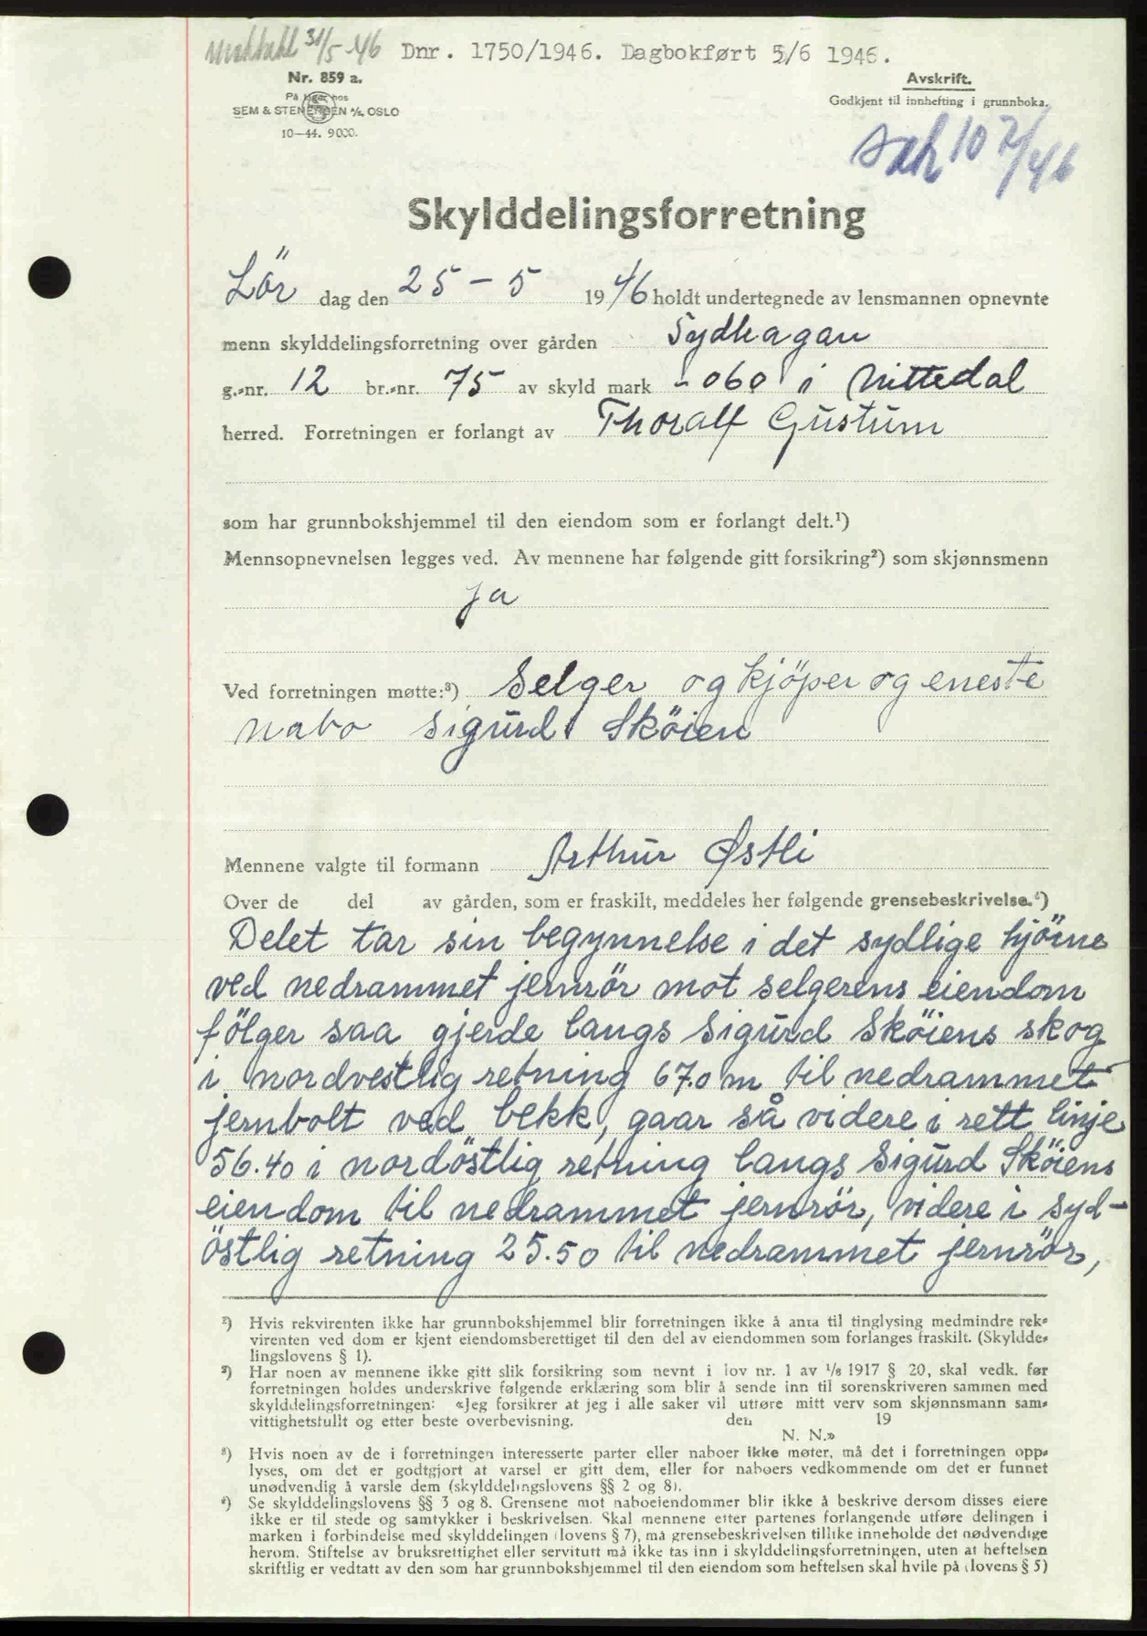 31/5-46 Dnr. 1750/1946. Dagbokført 5/6 1946.
Nr. 859 a.
På lager hos
SEM & STENERSEN A/S, OSLO
10—44. 9000.
Avskrift.
Godkjent til innhefting i grunnboka.
sak 107/46
Skylddelingsforretning
Lör dag den 25 - 5 1946 holdt undertegnede av lensmannen opnevnte
menn skylddelingsforretning over gården Sydhagan
g.-nr. 12 br.-nr. 75 av skyld mark - 060 i Nittedal
herred. Forretningen er forlangt av Thoralf Gustum
som har grunnbokshjemmel til den eiendom som er forlangt delt.¹)
Mennsopnevnelsen legges ved. Av mennene har følgende gitt forsikring²) som skjønnsmenn
ja
Ved forretningen møtte:³) Selger og kjöper og eneste
nabo Sigurd Sköien
Mennene valgte til formann Arthur Østli
Over de del av gården, som er fraskilt, meddeles her følgende grensebeskrivelse.⁴)
Delet tar sin begynnelse i det sydlige hjörne
ved nedrammet jernrör mot selgerens eiendom
fölger saa gjerde langs Sigurd Sköiens skog
i nordvestlig retning 67.0 m til nedrammet
jernbolt ved bekk, gaar så videre i rett linje
56.40 i nordöstlig retning langs Sigurd Sköiens
eiendom til nedrammet jernrör, videre i syd-
östlig retning 25.50 til nedrammet jernrör,
¹) Hvis rekvirenten ikke har grunnbokshjemmel blir forretningen ikke å anta til tinglysing medmindre rek-
virenten ved dom er kjent eiendomsberettiget til den del av eiendommen som forlanges fraskilt. (Skyldde-
lingslovens § 1).
²) Har noen av mennene ikke gitt slik forsikring som nevnt i lov nr. 1 av 1/6 1917 § 20, skal vedk. før
forretningen holdes underskrive følgende erklæring som blir å sende inn til sorenskriveren sammen med
skylddelingsforretningen: «Jeg forsikrer at jeg i alle saker vil utføre mitt verv som skjønnsmann sam-
vittighetsfullt og etter beste overbevisning. den 19
N. N.»
³) Hvis noen av de i forretningen interesserte parter eller naboer ikke møter, må det i forretningen opp-
lyses, om det er godtgjort at varsel er gitt dem, eller for naboers vedkommende om det er funnet
unødvendig å varsle dem (skylddelingslovens §§ 2 og 8).
⁴) Se skylddelingslovens §§ 3 og 8. Grensene mot naboeiendommer blir ikke å beskrive dersom disses eiere
ikke er til stede og samtykker i beskrivelsen. Skal mennene etter partenes forlangende utføre delingen i
marken i forbindelse med skylddelingen (lovens § 7), må grensebeskrivelsen tillike inneholde det nødvendige
herom. Stiftelse av bruksrettighet eller servitutt må ikke tas inn i skylddelingsforretningen, uten at heftelsen
skriftlig er vedtatt av den som har grunnbokshjemmel til den eiendom som heftelsen skal hvile på (lovens § 5)